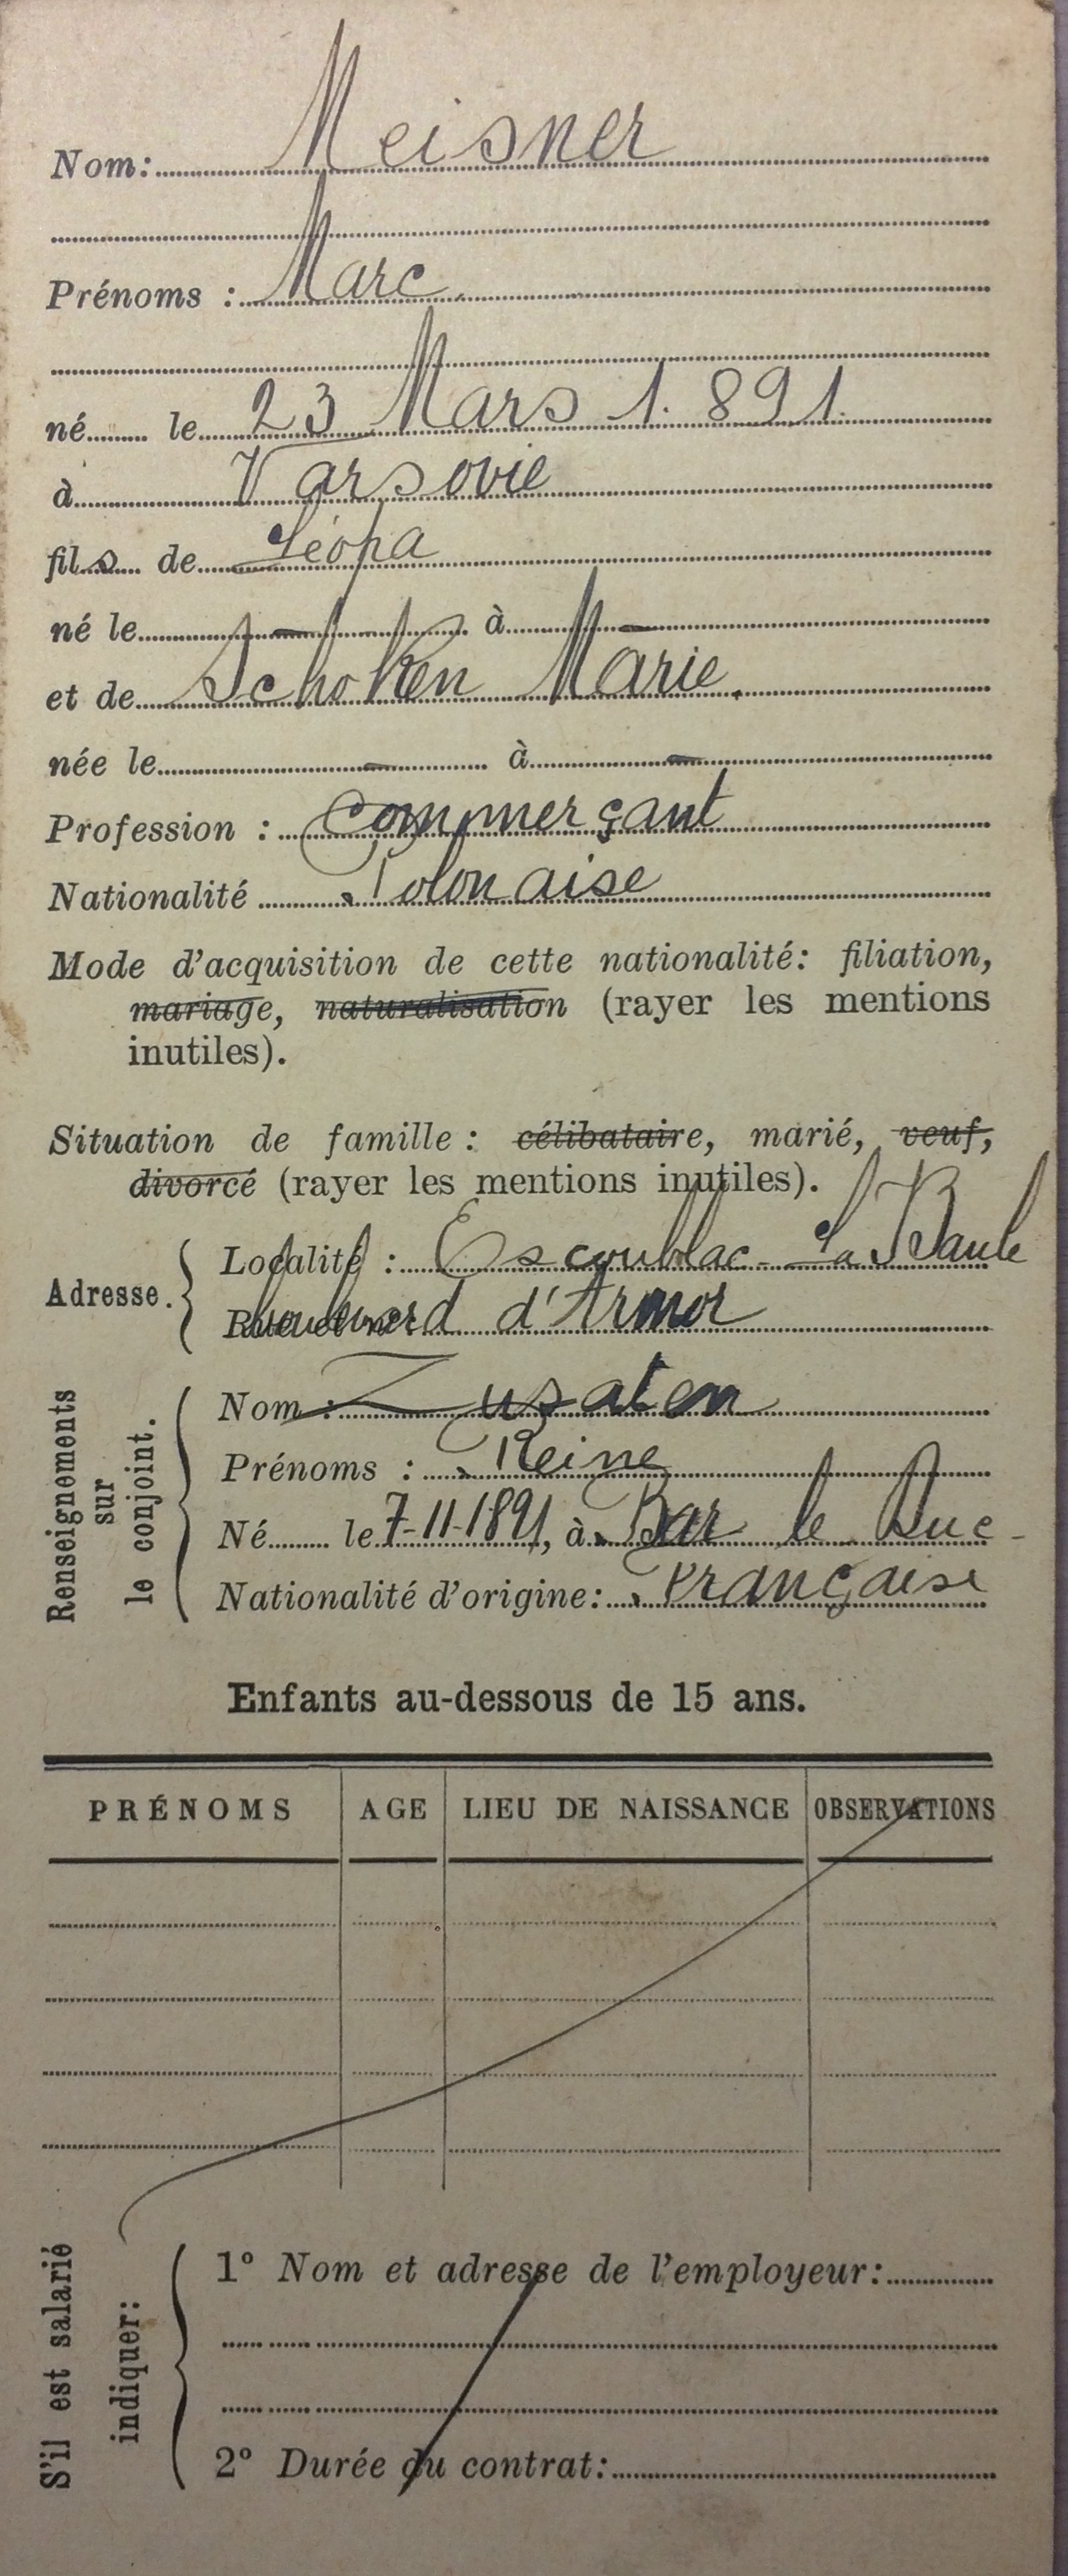 Nom: Meisner
Prénoms : Marc
né le 23 Mars 1.891.
à Varsovie
fils de Léopa
né le - à -
et de Schoken Marie.
née le - à -
Profession : Commerçant
Nationalité Polonaise
Mode d'acquisition de cette nationalité: filiation,
mariage, naturalisation (rayer les mentions
inutiles).
Situation de famille : célibataire, marié, veuf,
divorcé (rayer les mentions inutiles).
Adresse.
Localité : Escoublac-La Baule
Rue et nº boulevard d'Armor
Renseignements
sur
le conjoint.
Nom :
Prénoms : Reine
Né le 7-11-1891, à Bar le Duc-
Nationalité d'origine: Française
Enfants au-dessous de 15 ans.
PRÉNOMS AGE LIEU DE NAISSANCE OBSERVATIONS
S'il est salarié
indiquer:
1° Nom et adresse de l'employeur:
2° Durée du contrat: